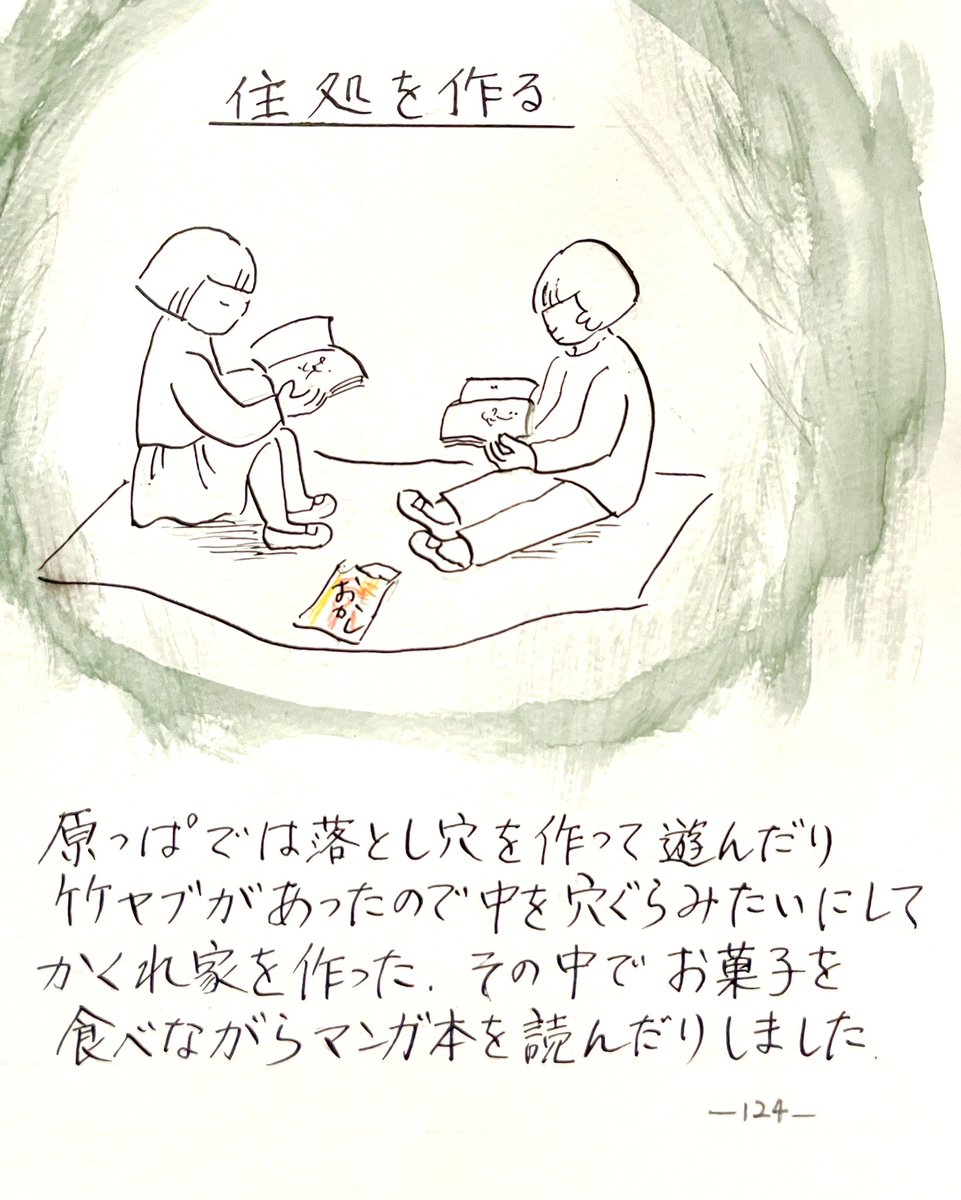 住処を作る
おかし
原っぱでは落とし穴を作って遊んだり
竹ヤブがあったので中を穴ぐらみたいにして
かくれ家を作った. その中でお菓子を
食べながらマンガ本を読んだりしました.
—124—